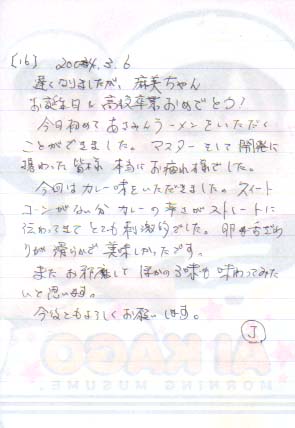 [16] 2004.3.6
遅くなりましたが、麻美ちゃん
お誕生日&高校卒業おめでとう!
今日初めてあさみんラーメンをいただく
ことができました。マスターそして開発に
携わった皆様 本当にお疲れ様でした。
今回はカレー味をいただきました。スイート
コーンがない分 カレーの辛さがストレートに
伝わってきてとても刺激的でした。卵もまざ
りが滑らかで美味しかったです。
また お邪魔して ほかの3味も味わってみた
いと思います。
今後ともよろしくお願いします。
J
AI KAGO
MORNING MUSUME.